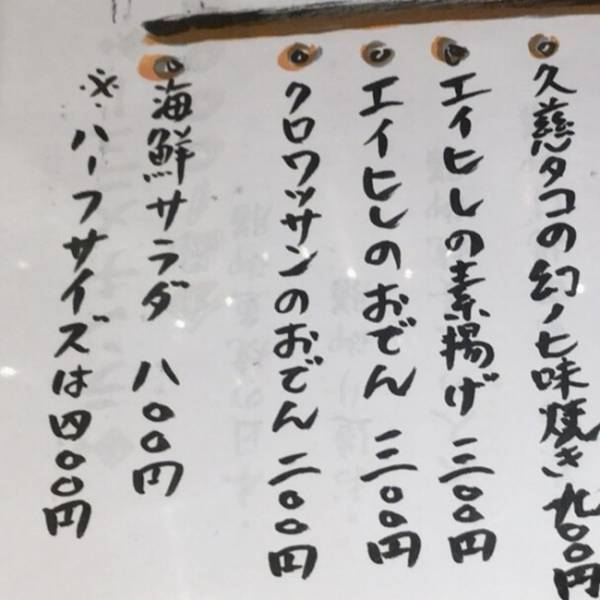 久慈タコの幻ノ七味焼き 九〇〇円
エイヒレの素揚げ 三〇〇円
エイヒレのおでん 三〇〇円
クロワッサンのおでん 二〇〇円
海鮮サラダ 八〇〇円
※ハーフサイズは四〇〇円